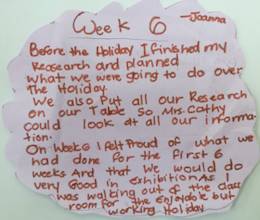 Week 6 - Joanna
Before the Holiday I finished my
Research and planned
what we were going to do over
The Holiday.
We also Put all our Research
on our Table So Mrs. Cathy
could look at all our informa-
tion.
On Week 6 I felt Proud of what we
had done for the first 6
weeks And that we would do
very Good in exhibition. As I
was walking out of the class
room for the enjoyable but
working Holiday